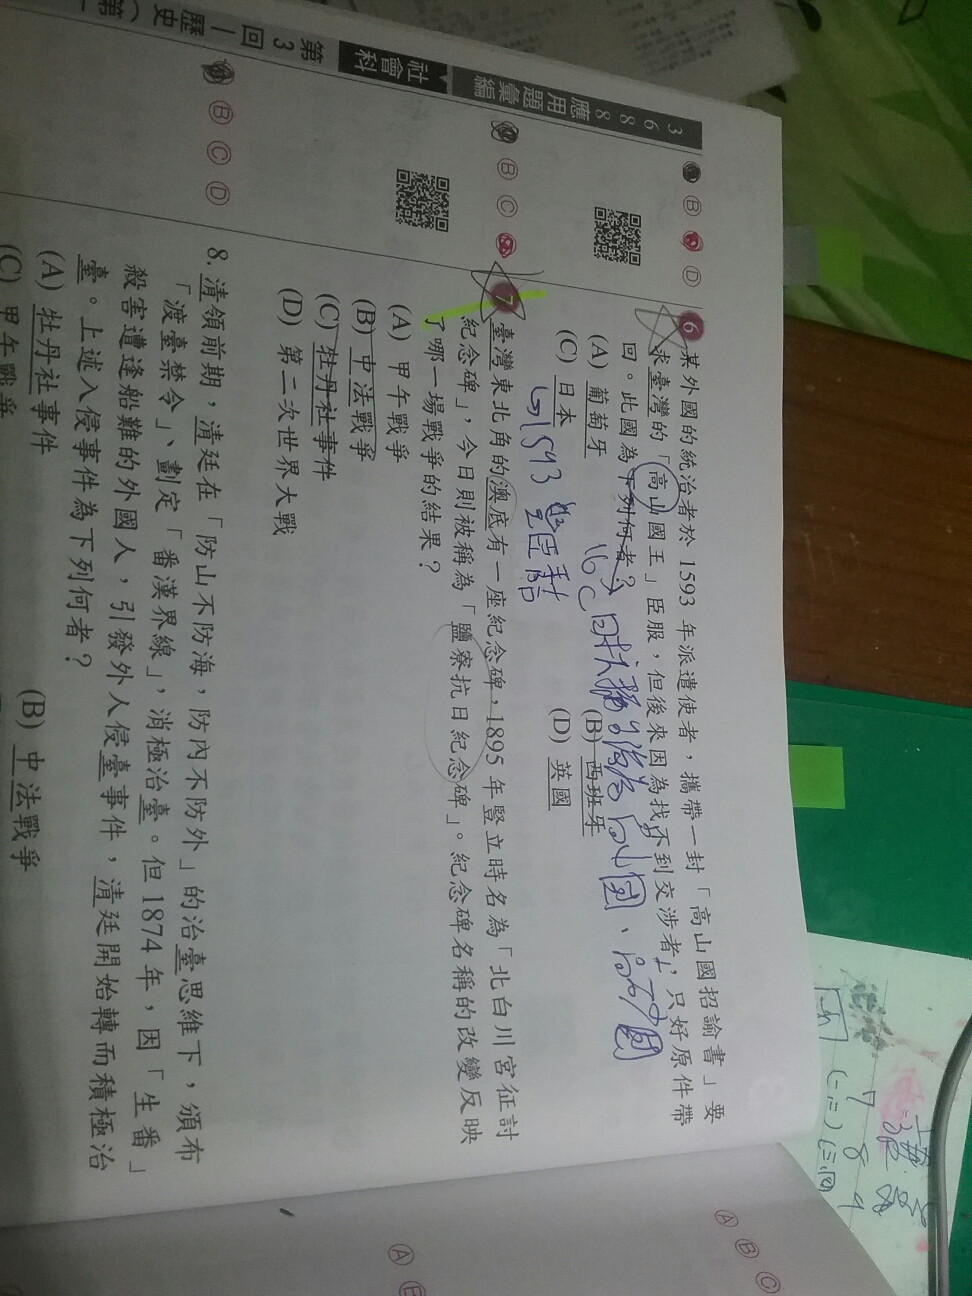 3688
應用題彙編
社會科
第3回｜歷史(第一
Ⓑ Ⓓ
6 某外國的統治者於 1593 年派遣使者，攜帶一封「高山國招諭書」要
求臺灣的「高山國王」臣服，但後來因為找不到交涉者，只好原件帶
回。此國為下列何者？
(A) 葡萄牙 (B) 西班牙
(C) 日本 (D) 英國
Ⓑ Ⓒ
7 臺灣東北角的澳底有一座紀念碑，1895 年豎立時名為「北白川宮征討
紀念碑」，今日則被稱為「鹽寮抗日紀念碑」。紀念碑名稱的改變反映
了哪一場戰爭的結果？
(A) 甲午戰爭
(B) 中法戰爭
(C) 牡丹社事件
(D) 第二次世界大戰
Ⓑ Ⓒ Ⓓ
8. 清領前期，清廷在「防山不防海，防內不防外」的治臺思維下，頒布
「渡臺禁令」、劃定「番漢界線」，消極治臺。但 1874 年，因「生番」
殺害遭逢船難的外國人，引發外人侵臺事件，清廷開始轉而積極治
臺。上述入侵事件為下列何者？
(A) 牡丹社事件 (B) 中法戰爭
(C) 甲午戰爭
Ⓐ Ⓑ Ⓒ
Ⓐ
1593
7 8 9